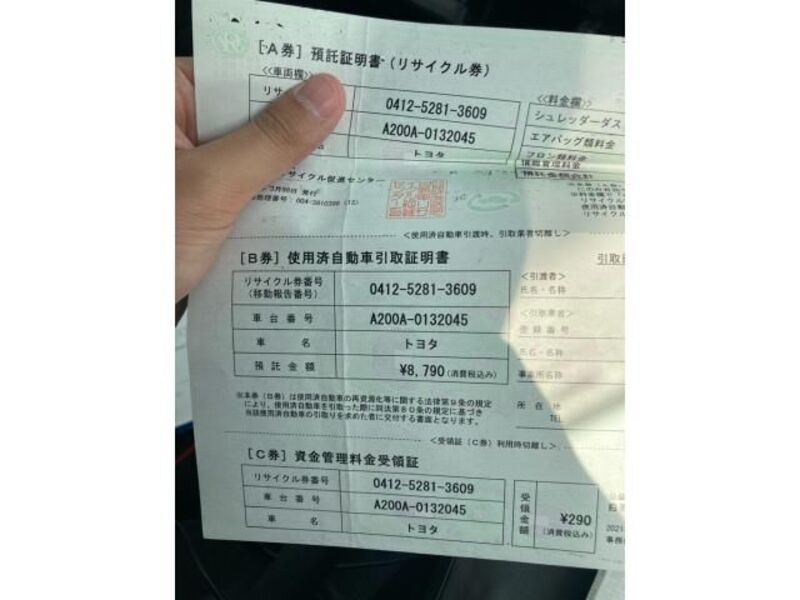 [A券] 預託証明書(リサイクル券)
≪車両欄≫
リサ
0412-5281-3609
A200A-0132045
トヨタ
≪料金欄≫
シュレッダーダス
エアバッグ類料金
フロン類料金
情報管理料金
預託金額合計
サイクル促進センター
<使用済自動車引渡時、引取業者切離し>
[B券] 使用済自動車引取証明書
リサイクル券番号
(移動報告番号)
0412-5281-3609
車台番号
A200A-0132045
車名
トヨタ
預託金額
¥8,790(消費税込み)
<引渡者>
氏名・名称
<引取業者>
登録番号
氏名・名称
事業所名称
所在地
TEL
※本券(B券)は使用済自動車の再資源化等に関する法律第9条の規定
により、使用済自動車を引取った際に同法第80条の規定に基づき
当該使用済自動車の引取りを求めた者に交付する書面となります。
<受領証(C券)利用時切離し>
[C券] 資金管理料金受領証
リサイクル券番号
0412-5281-3609
車台番号
A200A-0132045
車名
トヨタ
受領金額
¥290
(消費税込み)
2021